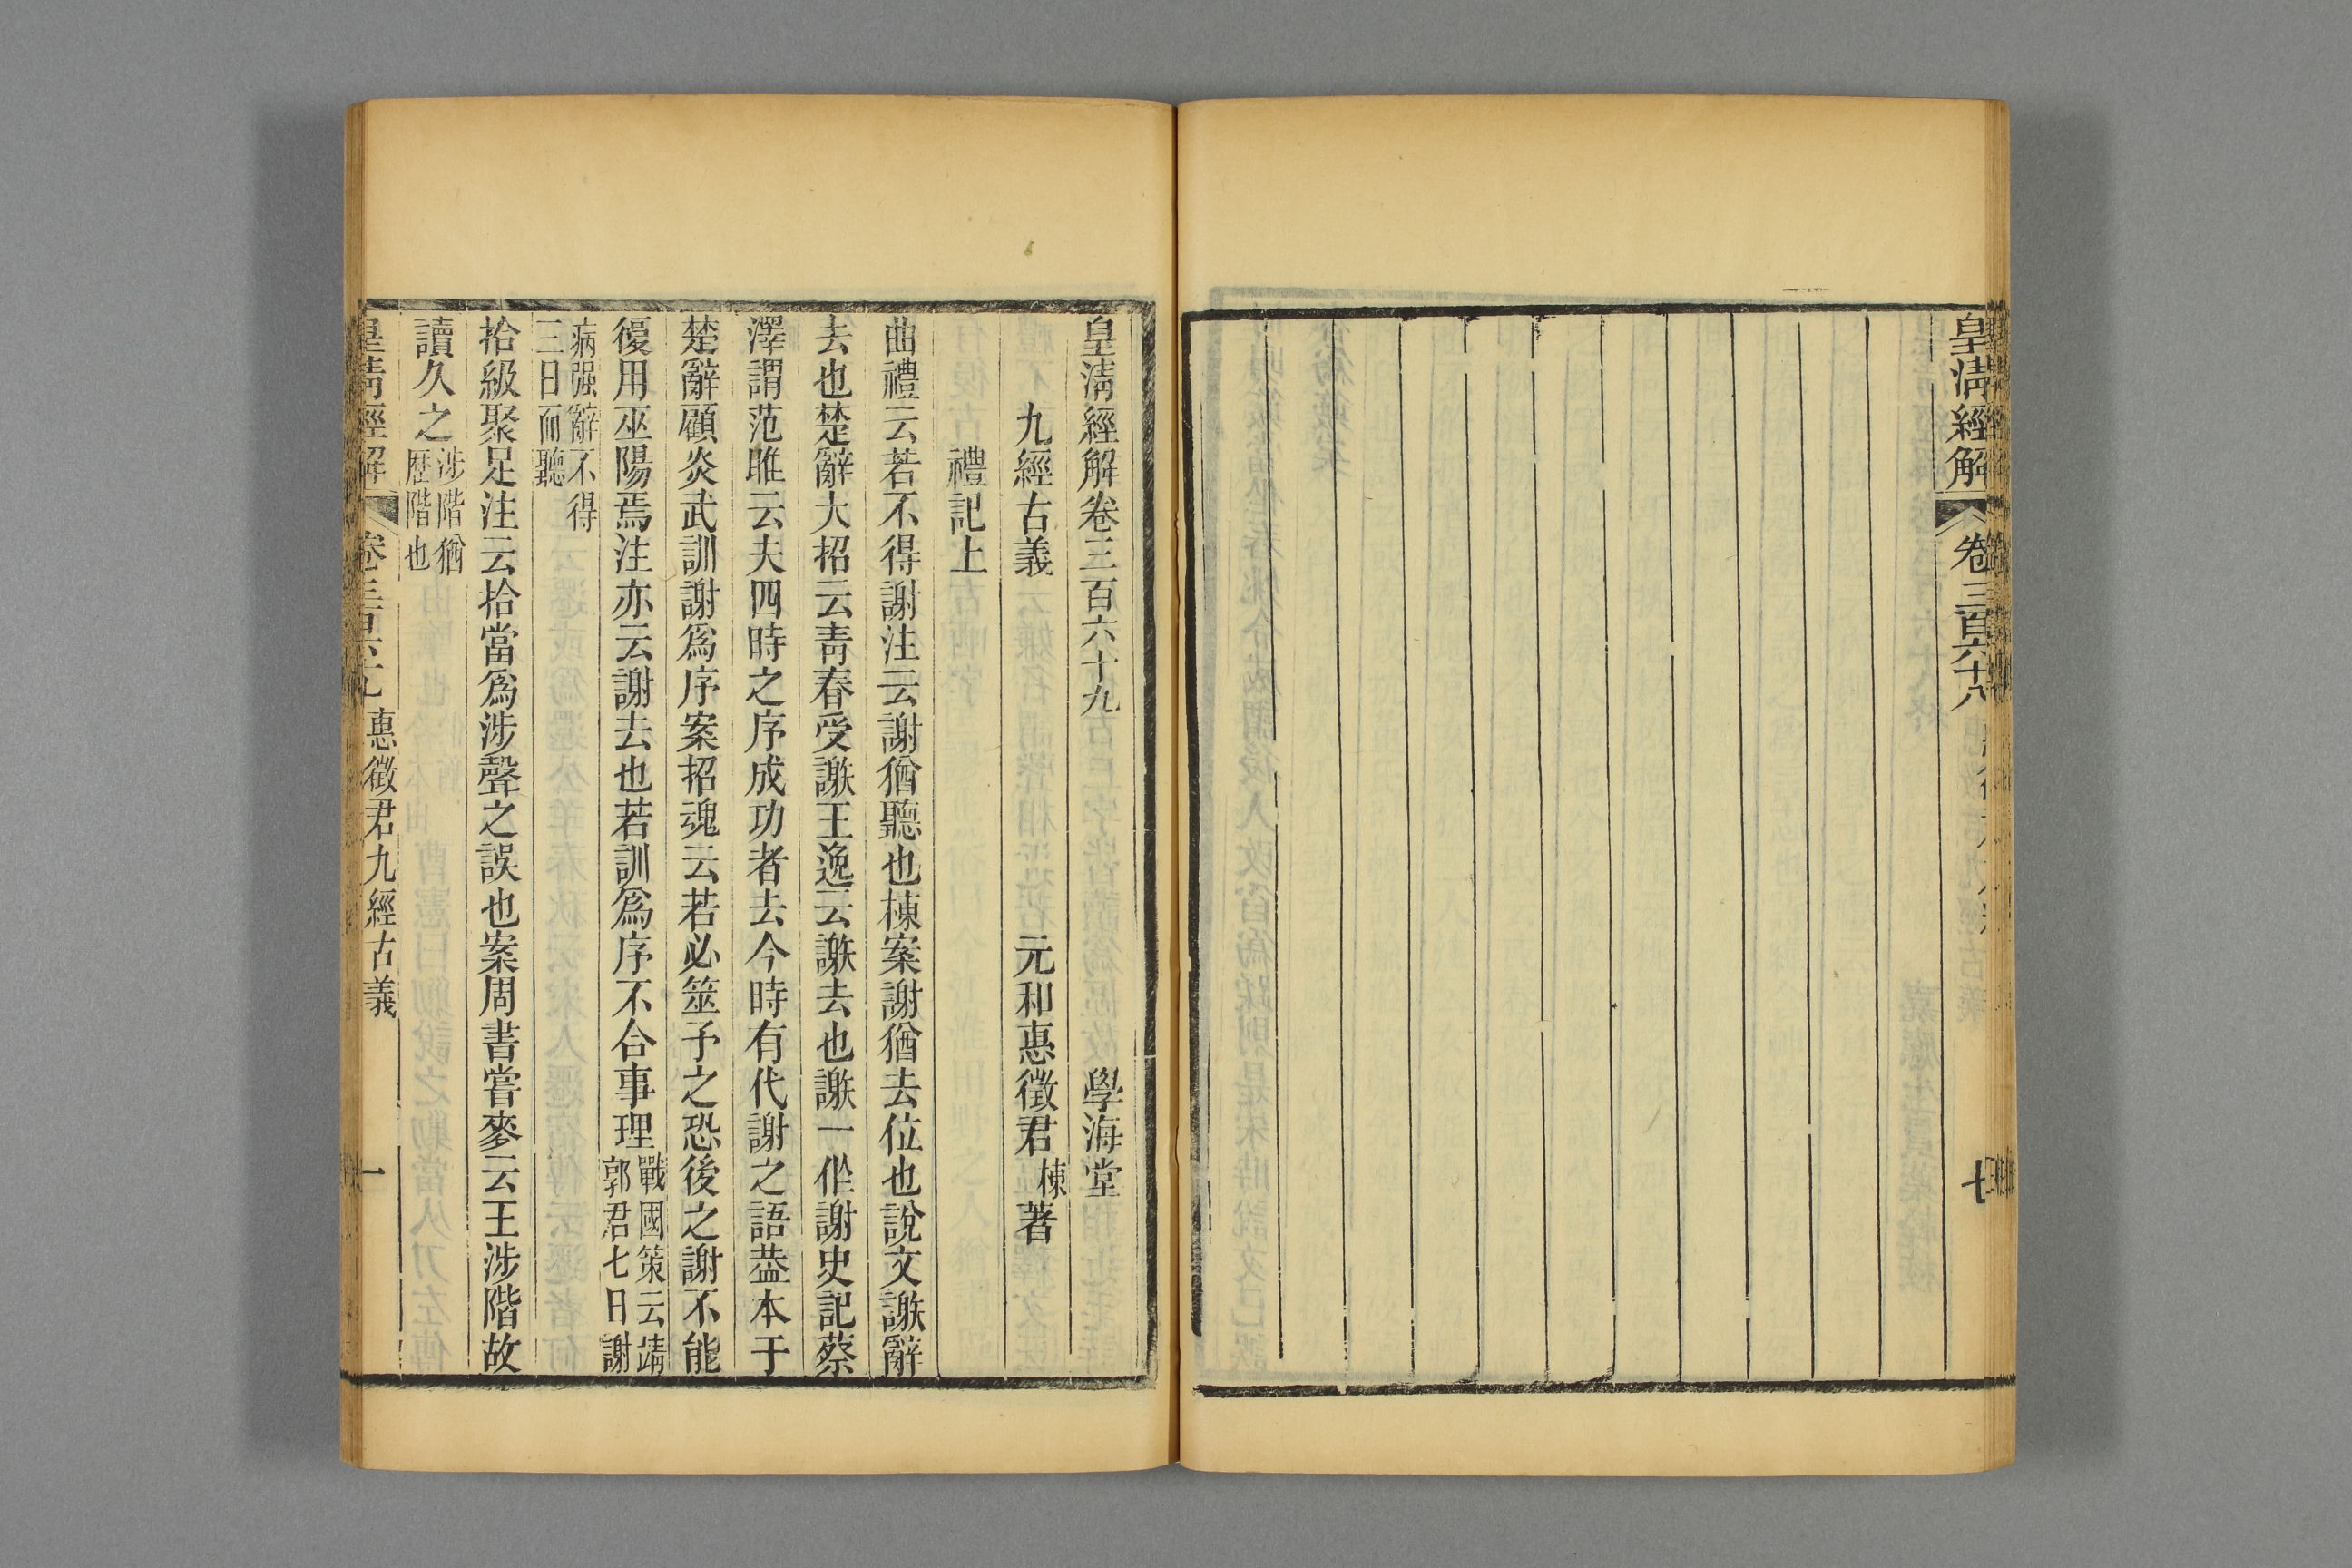 皇清經解 卷三百六十八 七
皇清經解卷三百六十九 學海堂
九經古義 元和惠徵君棟著
禮記上
曲禮云若不得謝注云謝猶聽也棟案謝猶去位也說文䜆辭
去也楚辭大招云靑春受䜆王逸云䜆去也䜆一作謝史記蔡
澤謂范雎云夫四時之序成功者去今時有代謝之語葢本于
楚辭顧炎武訓謝爲序案招魂云若必筮予之恐後之謝不能
復用巫陽焉注亦云謝去也若訓爲序不合事理戰國策云靖
郭君七日謝
病强辭不得
三日而聽
拾級聚足注云拾當爲涉聲之誤也案周書嘗麥云王涉階故
讀久之涉階猶
歷階也
皇清經解 卷三百六十九 惠徵君九經古義 一